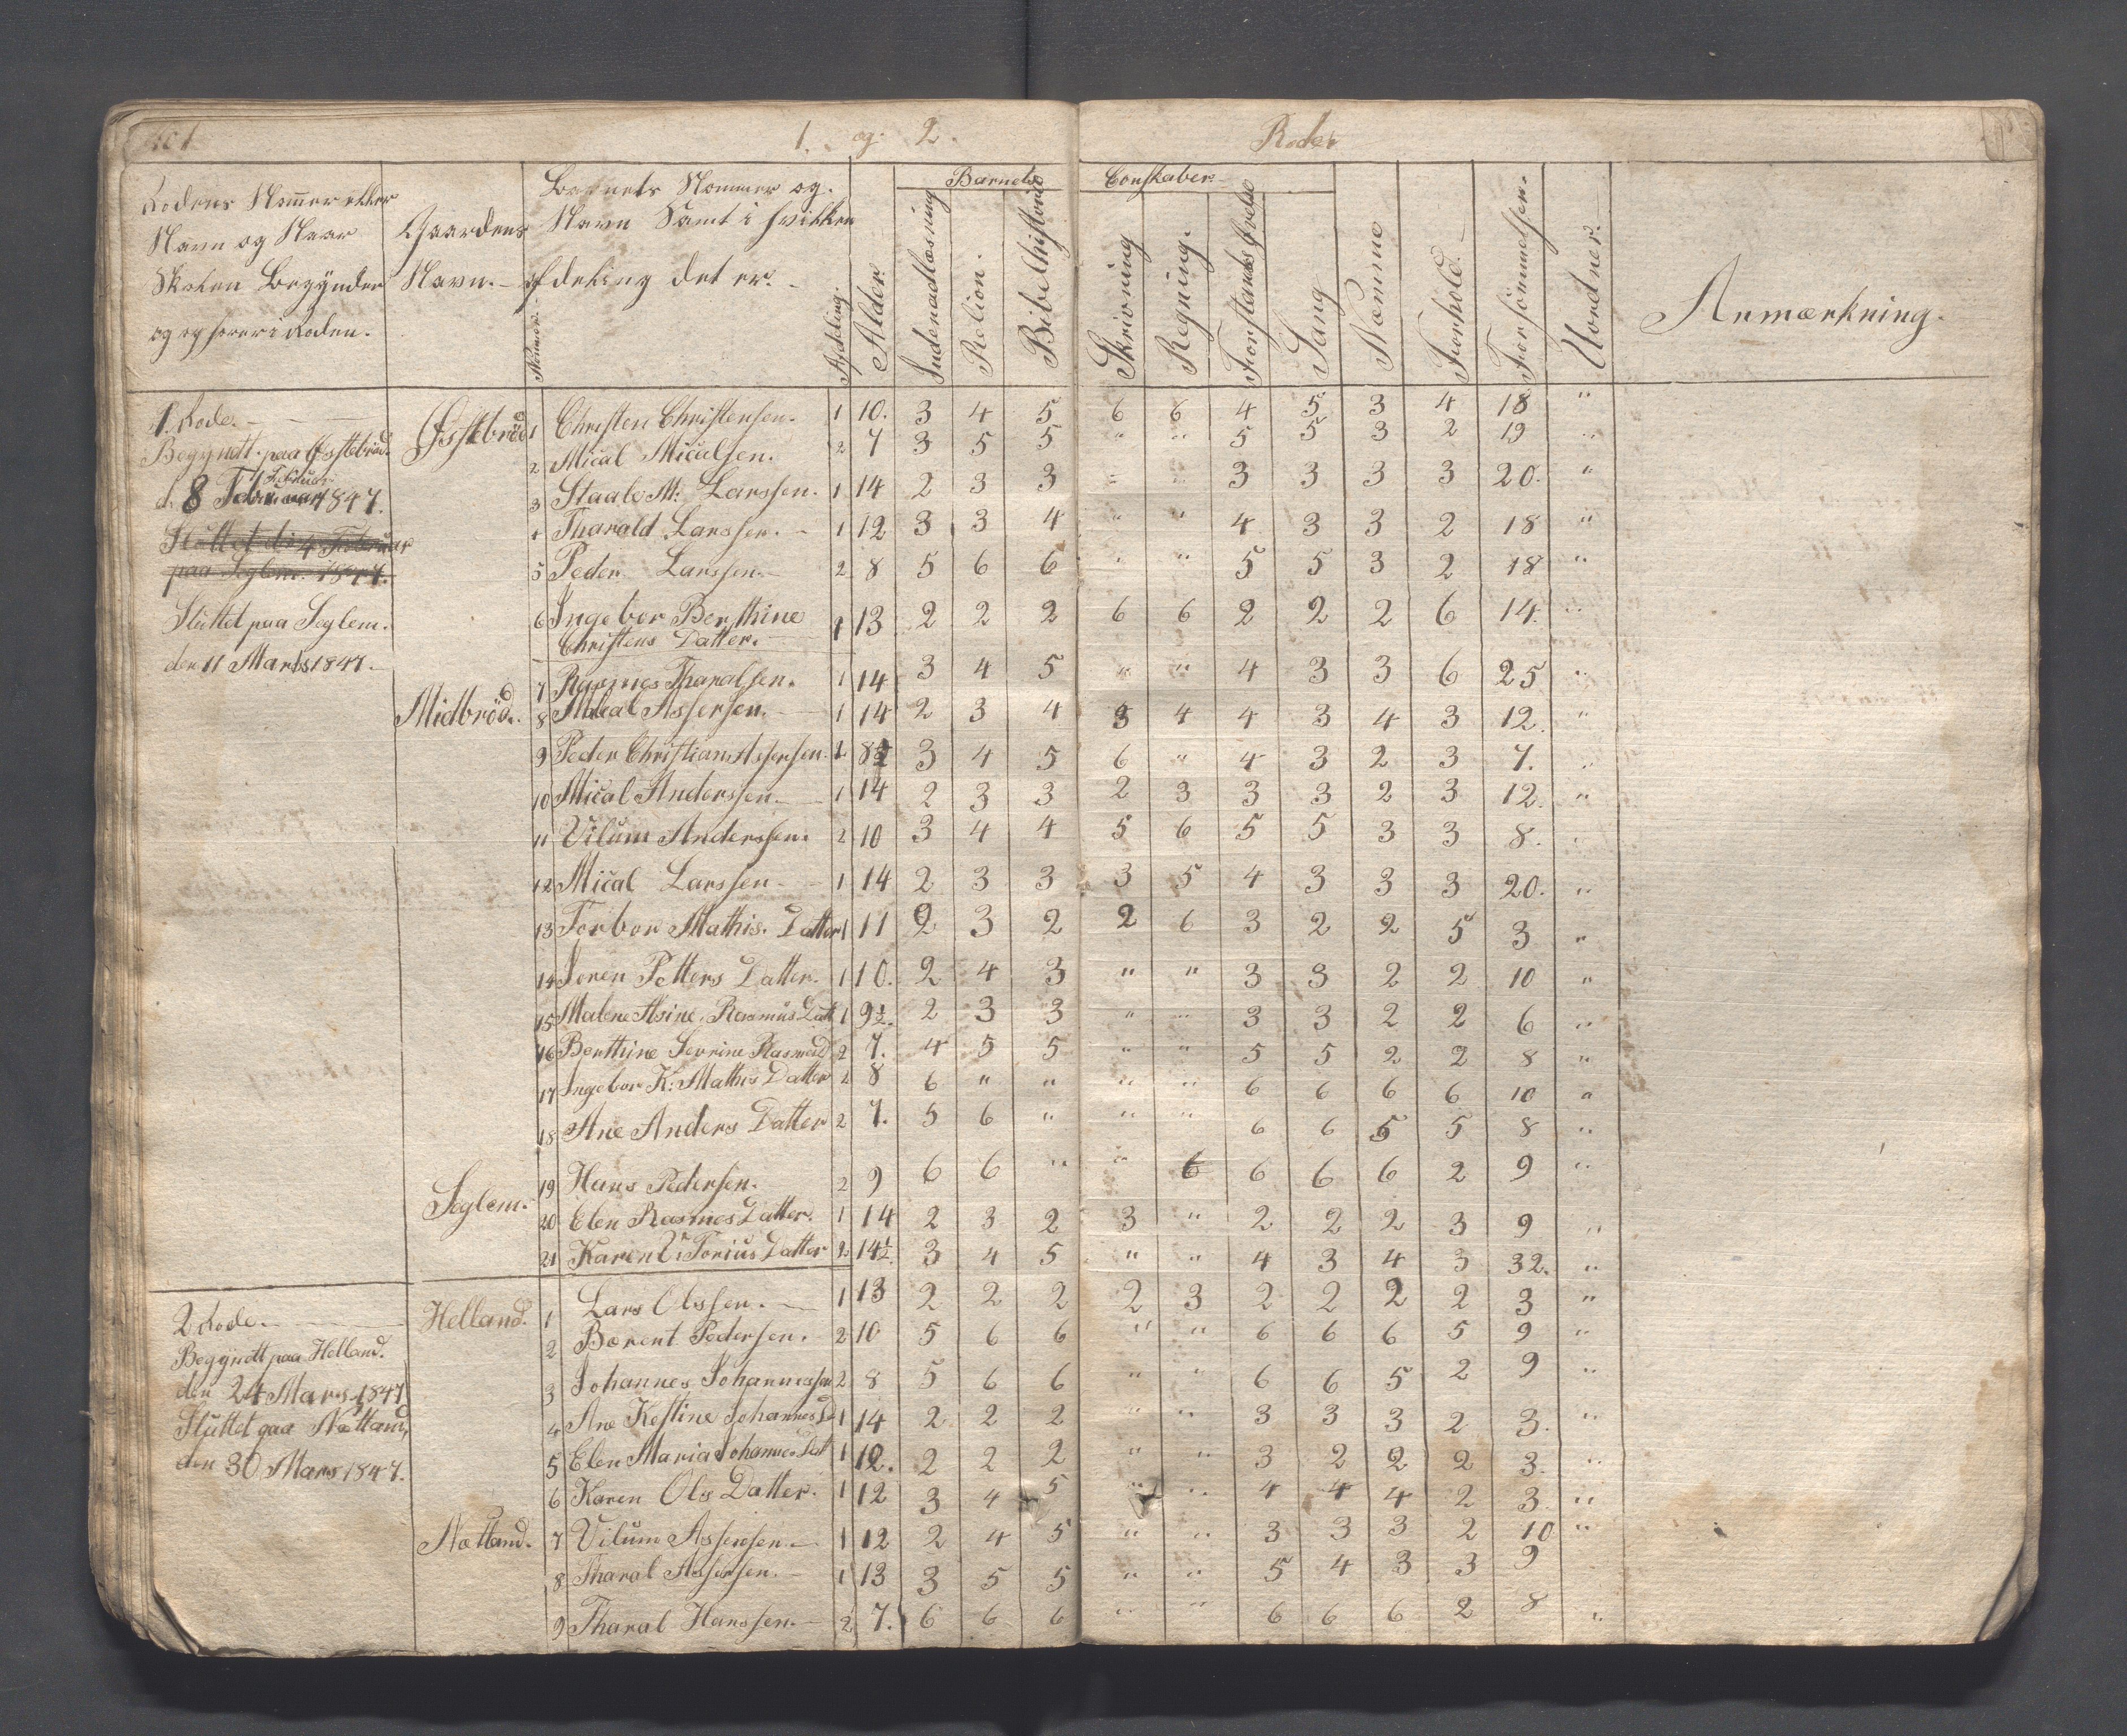 1. og 2. Roder
Rodens Nommer eller Navn og Naar Skolen Begynder og ophører i Roden.
Gaardens Navn.
Nommer.
Barnets Nommer og Navn Samt i hvilken Afdeling det er.
Afdeling.
Alder.
Barnets Conskaber.
Indenadlæsning
Relion.
Bibelhistorie
Skrivning
Regning.
Forstands øvelse
Sang
Næmme
Forhold.
Forsømmelsen.
Uordner.
Anmærkning.
1. Rode.
Begyndt paa Østebröd.
d. 8 Februar 1847.
Sluttet d: 4 Februar
paa Seglem. 1847.
Sluttet paa Seglem.
den 11 Marts 1847.
Østebröd 1 Christen Christensen. 1 10. 3 4 5 6 6 4 5 3 4 18 "
2 Mical Micalsen. 2 7 3 5 5 " " 5 5 3 2 19 "
3 Staale M: Larssen. 1 14 2 3 3 " " 3 3 3 3 20. "
4 Tharald Larssen. 1 12 3 3 4 " " 4 3 3 2 18 "
5 Peder Larssen. 2 8 5 6 6 " " 5 5 3 2 18 "
6 Ingebor Berthine
Christens Datter. 1 13 2 2 2 6 6 2 2 2 6 14. "
7 Rasmus Tharalsen. 1 14 3 4 5 " " 4 3 3 6 25 "
Midbröd. 8 Mical Assersen. 1 14 2 3 4 3 4 4 3 4 3 12. "
9 Peder Christian Assersen. 1 8½ 3 4 5 6 " 4 3 2 3 7. "
10 Mical Anderssen. 1 14 2 3 3 2 3 3 3 2 3 12. "
11 Vilum Anderssen. 2 10 3 4 4 5 6 5 5 3 3 8. "
12 Mical Larssen 1 14 2 3 3 3 5 4 3 3 3 20. "
13 Torbor Mathis. Datter 1 11 2 3 2 2 6 3 2 2 5 3 "
14 Seren Petters Datter. 1 10. 2 4 3 " " 3 3 2 2 10 "
15 Malene Asine. Rasmus Datt 1 9½. 2 3 3 " " 3 3 2 2 6 "
16 Berthine Serrine Rasmus D 2 7. 4 5 5 " " 5 5 2 2 8 "
17 Ingebor K: Mathis Datter 2 8 6 " " " " 6 6 6 6 10 "
18 Ane Anders Datter 2 7. 5 6 " " " 6 6 5 5 8 "
19 Hans Pedersen. 2 9 6 6 " " 6 6 6 6 2 9 "
Seglem. 20 Elen Rasmus Datter. 1 14 2 3 2 3 " 2 2 2 3 9 "
21 Karen V: Torius Datter 2 14½. 3 4 5 " " 4 3 4 3 32. "
2 Rode.
Begyndt paa Helland.
den 24 Mars 1847
Sluttet paa Nætland,
den 30 Mars 1847.
Helland. 1 Lars Olssen. 1 13 2 2 2 2 3 2 2 2 2 3 "
2 Bærent Pedersen. 2 10 5 6 6 " " 6 6 6 5 9 "
3 Johannes Johannessen 2 8 5 6 6 " " 6 6 5 2 9 "
4 Ane Kestine Johannes D 1 14 2 2 2 " " 3 3 3 2 3. "
5 Elen Maria Johannes Datt 1 12. 2 2 2 " " 3 2 2 2 3. "
6 Karen Ols Datter. 1 12 3 4 5 " " 4 4 4 2 3. "
Nætland. 7 Vilum Assersen. 1 12 2 4 5 " " 3 3 3 2 10 "
8 Tharal Assersen. 1 13 3 5 5 " " 5 4 3 3 9
9 Tharal Hanssen. 2 7. 6 6 6 " " 6 6 6 2 8 "